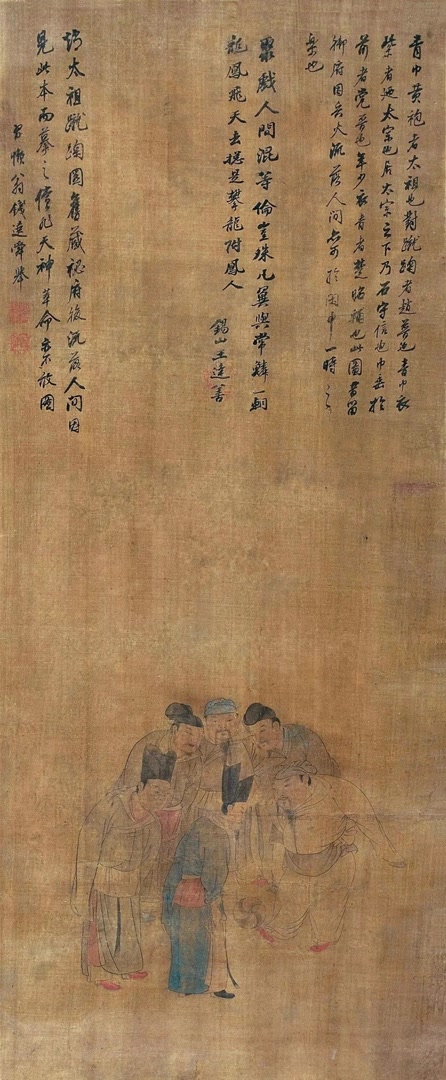 青巾黄袍者太祖也對蹴踘者趙普也青巾衣
紫者迺太宗也居太宗之下乃石守信也巾垂於
前者党晉也年少衣青者楚昭輔也此圖留
御府因兵火流落人間於圖中一時之
樂也
聚戲人間混等倫豈殊凡翼與常鱗一朝
龍鳳飛天去總是攀龍附鳳人
錫山王達善
太祖蹴踘圖舊藏秘府後流落人間因
見此本而摹之
習懶翁錢選舜舉